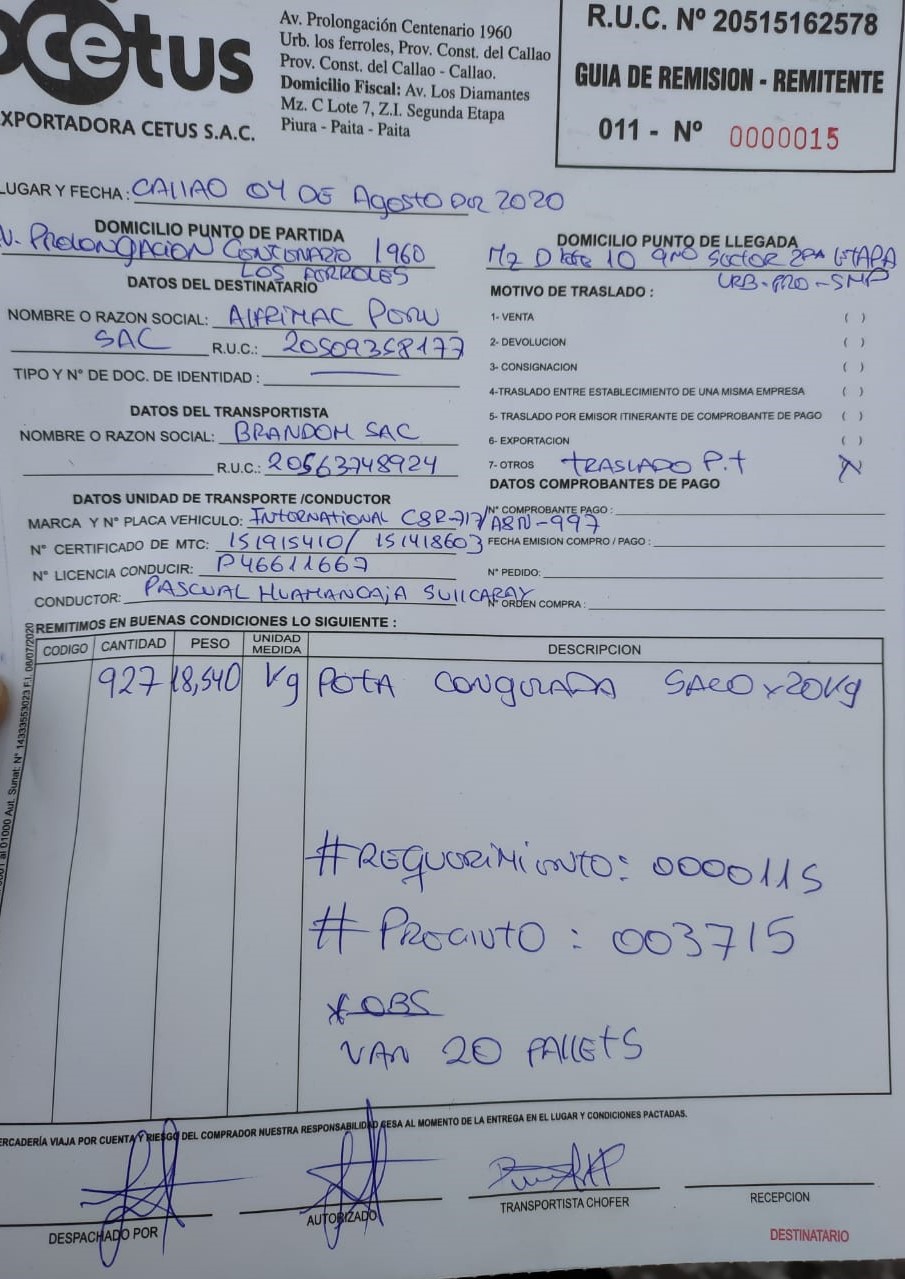 cetus
XPORTADORA CETUS S.A.C.
Av. Prolongación Centenario 1960
Urb. los ferroles, Prov. Const. del Callao
Prov. Const. del Callao - Callao.
Domicilio Fiscal: Av. Los Diamantes
Mz. C Lote 7, Z.I. Segunda Etapa
Piura - Paita - Paita
R.U.C. Nº 20515162578
GUIA DE REMISION - REMITENTE
011 - Nº 0000015
LUGAR Y FECHA: CALLAO 04 DE Agosto DEL 2020
DOMICILIO PUNTO DE PARTIDA
V. PROLONGACION CENTENARIO 1960
LOS FERROLES
DOMICILIO PUNTO DE LLEGADA
Mz D lote 10 9no Sector 2DA ETAPA
URB-PRO-SMP
DATOS DEL DESTINATARIO
NOMBRE O RAZON SOCIAL: ALFRIMAC PERU
SAC R.U.C.: 20509358177
TIPO Y Nº DE DOC. DE IDENTIDAD :
MOTIVO DE TRASLADO :
1- VENTA ( )
2- DEVOLUCION ( )
3- CONSIGNACION ( )
4-TRASLADO ENTRE ESTABLECIMIENTO DE UNA MISMA EMPRESA ( )
5- TRASLADO POR EMISOR ITINERANTE DE COMPROBANTE DE PAGO ( )
6- EXPORTACION ( )
7- OTROS TRASLADO P.t X
DATOS DEL TRANSPORTISTA
NOMBRE O RAZON SOCIAL: BRANDOM SAC
R.U.C.: 20563748924
DATOS UNIDAD DE TRANSPORTE /CONDUCTOR
MARCA Y Nº PLACA VEHICULO: INTERNATIONAL C8R-717/A8N-997
Nº CERTIFICADO DE MTC: 151915410/ 151418603
Nº LICENCIA CONDUCIR: P46611667
CONDUCTOR: PASCUAL HUAMANCAJA SULLCARAY
DATOS COMPROBANTES DE PAGO
Nº COMPROBANTE PAGO :
FECHA EMISION COMPRO / PAGO :
Nº PEDIDO:
Nº ORDEN COMPRA :
REMITIMOS EN BUENAS CONDICIONES LO SIGUIENTE :
CODIGO CANTIDAD PESO UNIDAD MEDIDA DESCRIPCION
927 18,540 Kg POTA CONGELADA SACO x 20Kg
#REQUERIMIENTO: 0000115
# PRECINTO : 003715
*OBS
VAN 20 PALLETS
01000 Aut. Sunat: Nº 14333553023 F.I. 06/07/2020
ERCADERÍA VIAJA POR CUENTA Y RIESGO DEL COMPRADOR NUESTRA RESPONSABILIDAD CESA AL MOMENTO DE LA ENTREGA EN EL LUGAR Y CONDICIONES PACTADAS.
DESPACHADO POR
AUTORIZADO
TRANSPORTISTA CHOFER
RECEPCION
DESTINATARIO